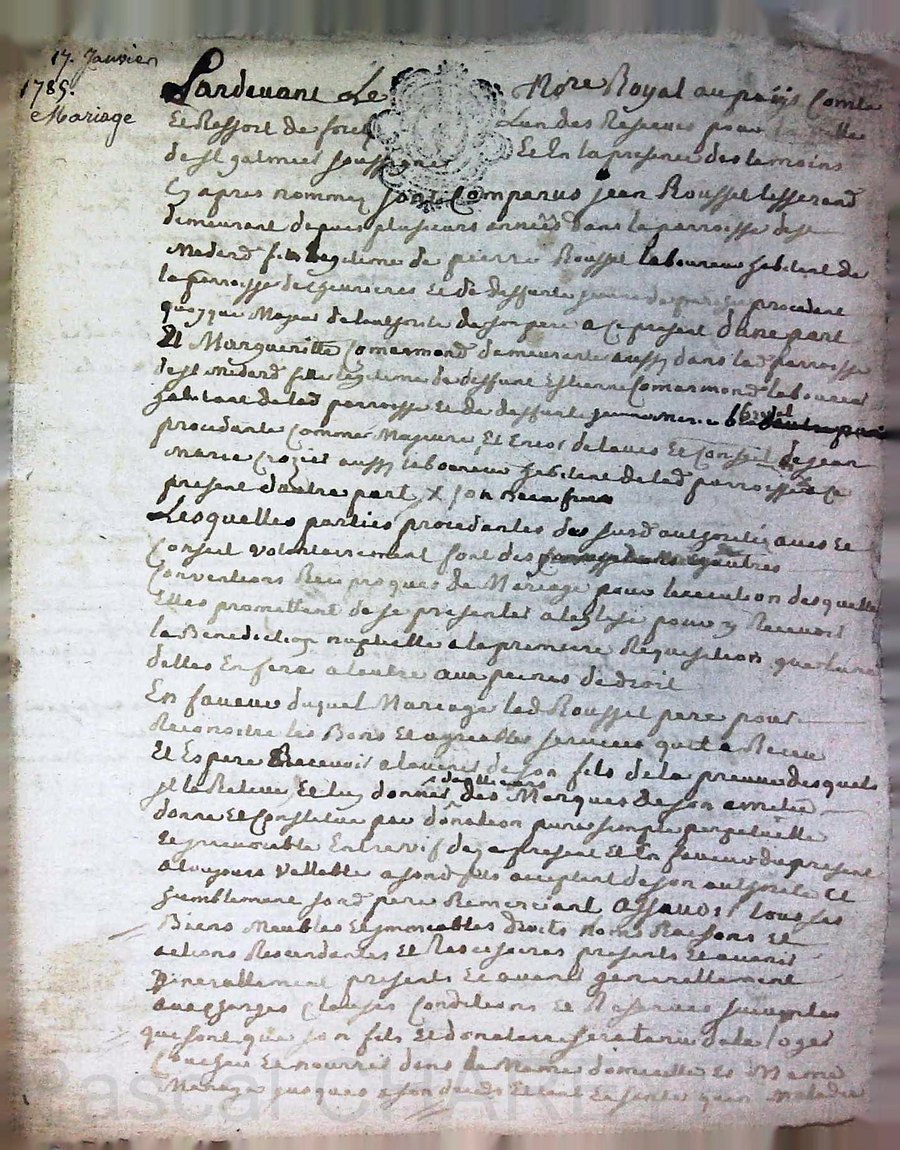 17. Janvier
1785.
Mariage
Pardevant Le Nore Royal au païs Comté
Et Ressort de forez Lun des Reserves pour la ville
de st galmier soussigné Et En la presence des temoins
Cy apres nommez sont Comparus jean Roussel tisserand
demeurant depuis plusieurs années dans la parroisse de st
Medard fils legitime de pierre Roussel laboureur habitant de
la parroisse de chevrieres Et de deffunte procedant
quoyque Majeur de lauthorité de son pere a Ce present dune part
Et Margueritte Comarmond demeurante aussy dans lad parroisse
de st Medard fille legitime de deffunt Estienne Comarmond laboureur
habitant de lad parroisse Et de deffunte jeanne Marie
procedante Comme Majeure Et Encor de lavis Et Conseil de jean
Marie Crozier aussy laboureur habitant de lad parroisse a Ce
present dautre part x son beau frere
Lesquelles parties procedantes des susd authorité avis Et
Conseil volontairement font des
Conventions Reciproques de Mariage pour lexecution desquelles
Elles promettent de se presenter a leglise pour y Recevoir
la Benediction nuptielle a la premiere Requisition que lune
delles En fera a lautre aux peines de droit
En faveur duquel Mariage led Roussel pere pour
Reconoitre les Bons Et agreables services quil a Receu
Et Espere Recevoir a lavenir de son fils de la preuve desquels
il la Releve, Et luy donner des Marques de son amitié
donne Et Constitue par donation pure simple perpetuelle
Et irrevocable Entre vif des a present Et En faveur du present
a toujours vallable a sond fils acceptant de son authorité Et
humblement sond pere Remerciant assavoir tous ses
Biens Meubles Et immeubles droits noms Raisons Et
actions Rescendantes Et Rescisoires presents Et avenir
generallement presents Et avenir generallement
aux charges clauses Conditions Et Reserves suivantes
qui sont que son fils Et donataire sera tenu de le loger
Chauffer Et nourrir dans le Meme domicille Et Meme
Menage jusques a son deces Et tant En santé quen Maladie
Pascal CHARLY